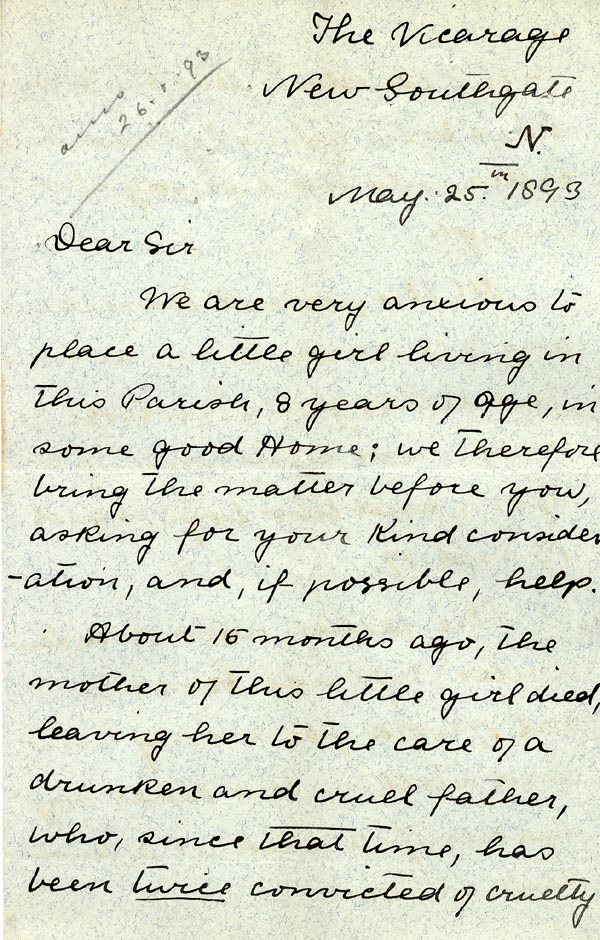 The Vicarage
New Southgate
N.
May. 25.th 1893
answd
26.5.93
Dear Sir
We are very anxious to
place a little girl living in
this Parish, 8 years of age, in
some good Home; we therefore
bring the matter before you,
asking for your kind consider
-ation, and, if possible, help.
About 15 months ago, the
mother of this little girl died,
leaving her to the care of a
drunken and cruel father,
who, since that time, has
been twice convicted of cruelty